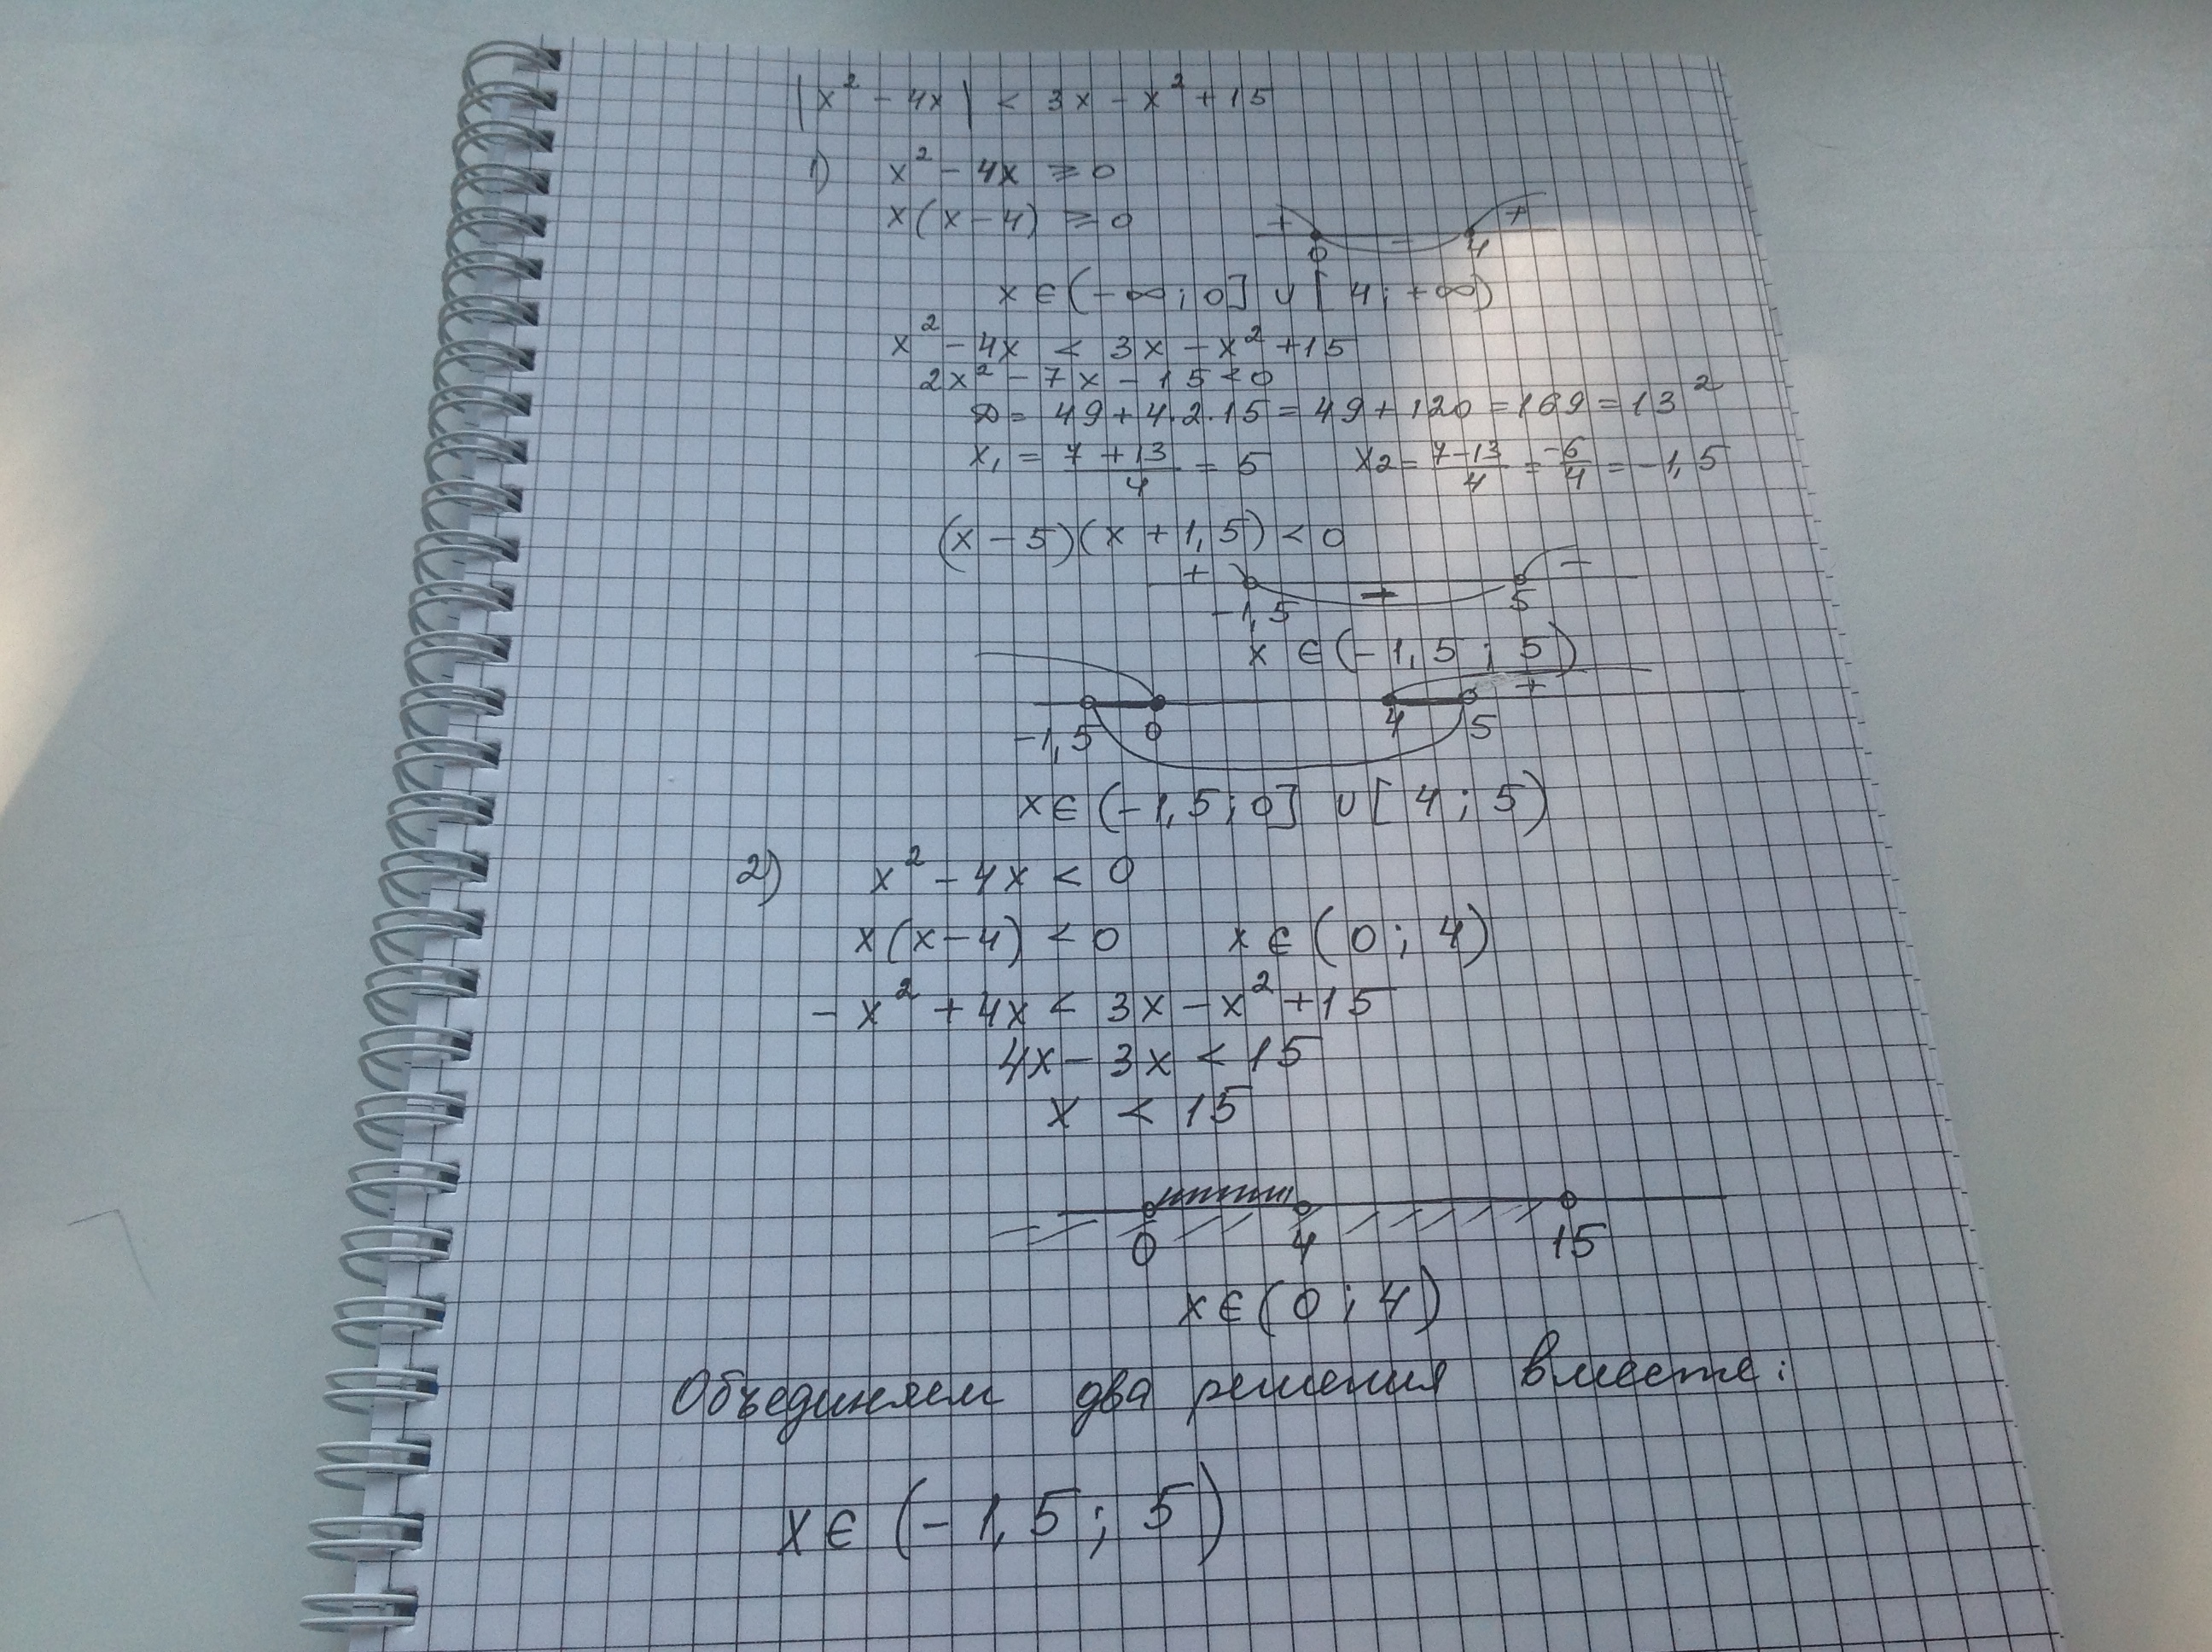 |x² - 4x| < 3x - x² + 15
1) x² - 4x ≥ 0
x(x - 4) ≥ 0
+ - +
0 4
x ∈ (-∞; 0] ∪ [4; +∞)
x² - 4x < 3x - x² + 15
2x² - 7x - 15 < 0
D = 49 + 4·2·15 = 49 + 120 = 169 = 13²
x₁ = (7 + 13)/4 = 5 x₂ = (7 - 13)/4 = -6/4 = -1,5
(x - 5)(x + 1,5) < 0
+ + -
-1,5 5
x ∈ (-1,5; 5)
+
-1,5 0 4 5
x ∈ (-1,5; 0] ∪ [4; 5)
2) x² - 4x < 0
x(x - 4) < 0 x ∈ (0; 4)
- x² + 4x < 3x - x² + 15
4x - 3x < 15
x < 15
0 4 15
x ∈ (0; 4)
Объединяем два решения вместе:
x ∈ (-1,5; 5)